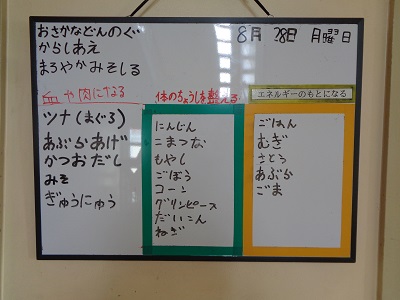 おさかなどんのぐ
からしあえ
まろやかみそしる
8月 28日 月曜日
血や肉になる
ツナ(まぐろ)
あぶらあげ
かつおだし
みそ
ぎゅうにゅう
体のちょうしを整える
にんじん
こまつな
もやし
ごぼう
コーン
グリンピース
だいこん
ねぎ
エネルギーのもとになる
ごはん
むぎ
さとう
あぶら
ごま